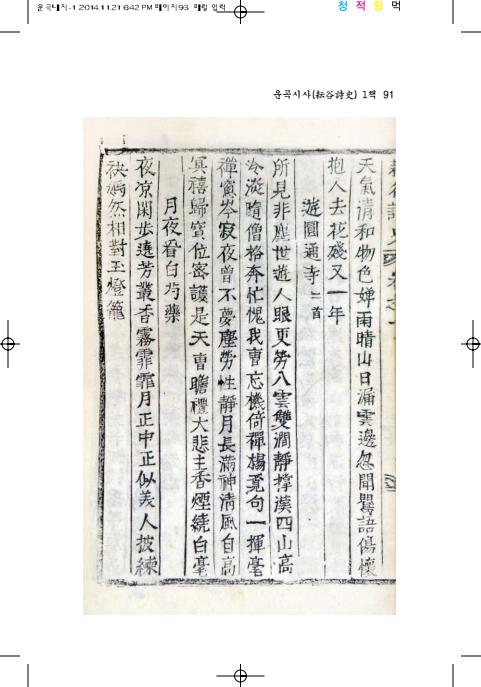 운곡내지-1 2014.11.21 6:42 PM 페이지93 매킬 입력
청 적 황 먹
운곡시사(耘谷詩史) 1책 91
天氣淸和物色嬋雨晴山日漏雲邊忽聞鸎語傷懷
抱人去花殘又一年
遊圓通寺 二首
所見非塵世遊人眼更勞八雲雙澗靜撑漢四山高
冷淡隨僧格奔忙愧我曺忘機倚禪榻覓句一揮毫
禪窓岑寂夜曾不夢塵勞性靜月長滿神淸風自高
冥禧歸寶位密護是天曺瞻禮大悲主香煙繞白毫
月夜看白芍藥
夜凉閑步遶芳叢香霧霏霏月正中正似美人披練
袂嫣然相對玉燈籠